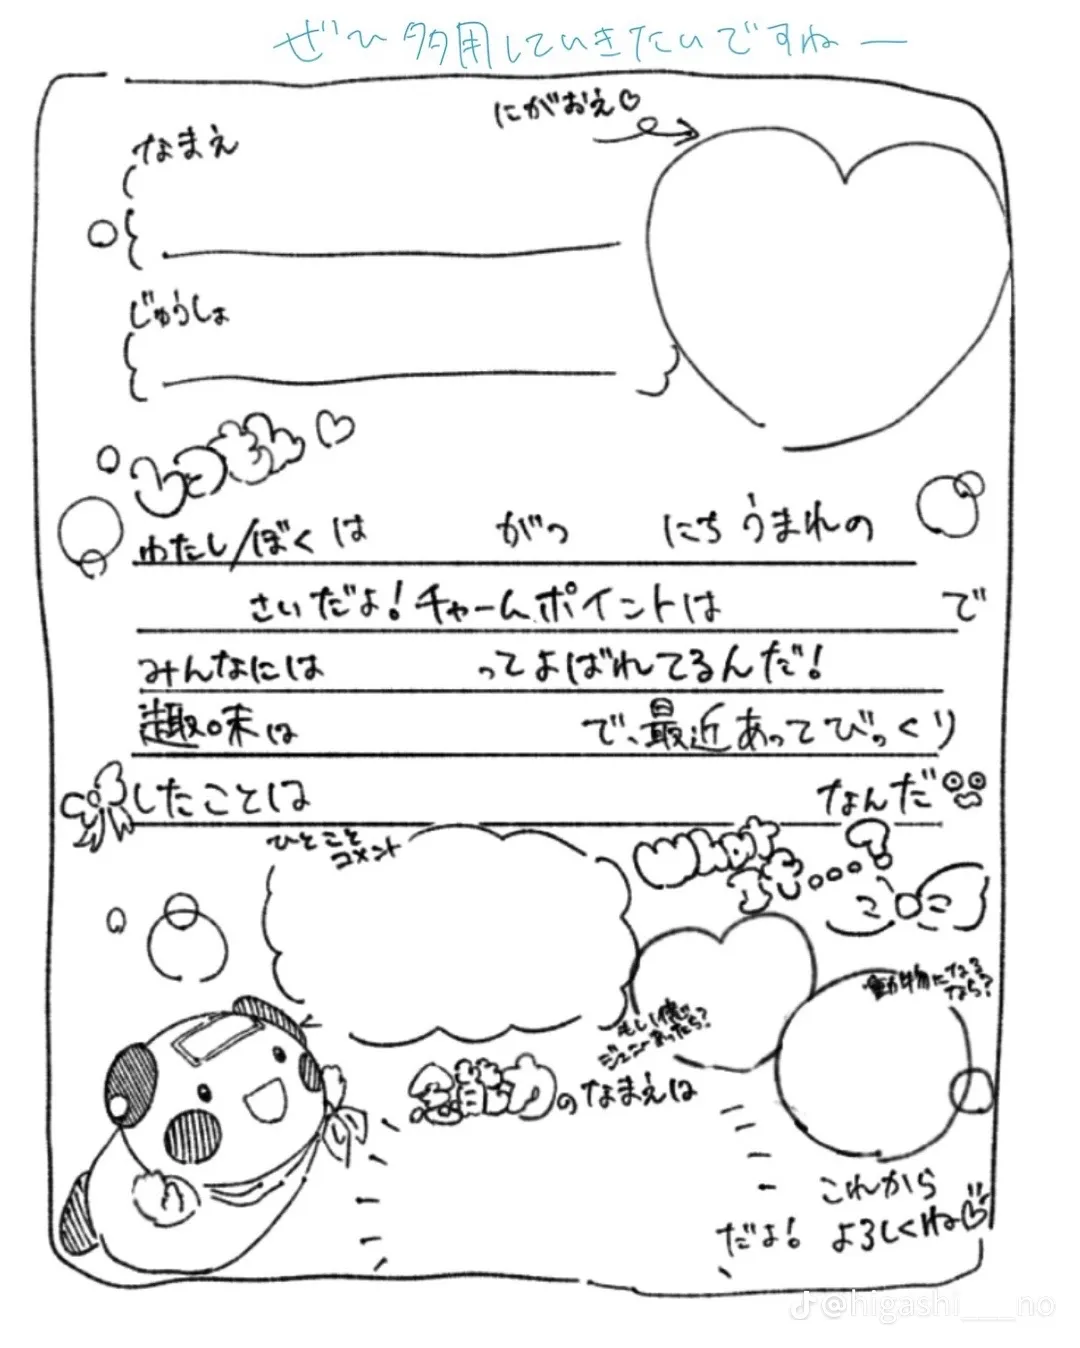 ぜひ多用していきたいですねー
にがおえ♡
なまえ
じゅうしょ
しつもん♡
わたし/ぼくは がつ にち うまれの
さいだよ！チャームポイントは で
みんなには ってよばれてるんだ！
趣味は で、最近あってびっくり
したことは なんだ
ひとこと
コメント
What
if...?
動物になる
なら？
もし僕に
あったら？
能力のなまえは
これから
だよ！ よろしくね♡
@higashi___no